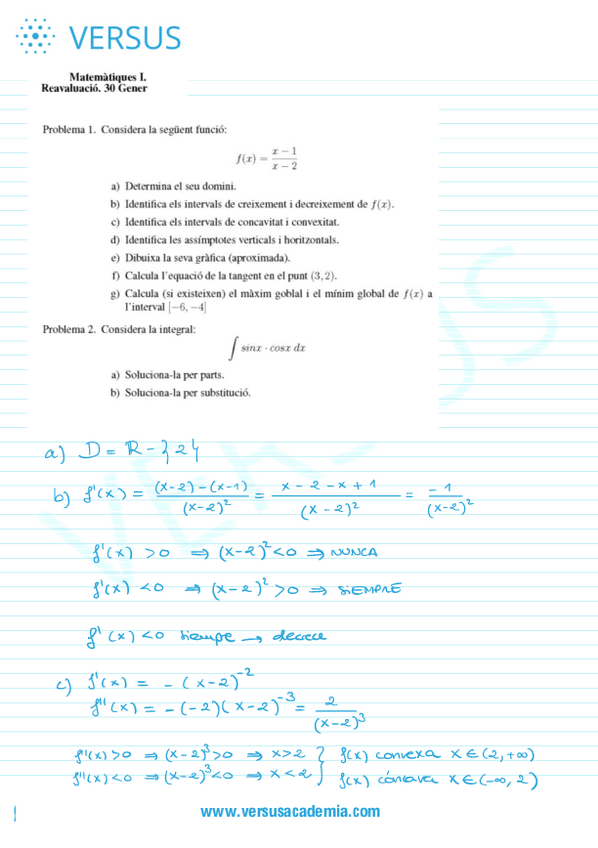 VERSUS
Matemàtiques I.
Reavaluació. 30 Gener
Problema 1. Considera la següent funció:
f(x) = \frac{x - 1}{x - 2}
a) Determina el seu domini.
b) Identifica els intervals de creixement i decreixement de f(x).
c) Identifica els intervals de concavitat i convexitat.
d) Identifica les assímptotes verticals i horitzontals.
e) Dibuixa la seva gràfica (aproximada).
f) Calcula l'equació de la tangent en el punt (3, 2).
g) Calcula (si existeixen) el màxim goblal i el mínim global de f(x) a
l'interval [−6, −4]
Problema 2. Considera la integral:
∫ sinx · cosx dx
a) Soluciona-la per parts.
b) Soluciona-la per substitució.
a) D = R - {2}
b) f'(x) = \frac{(x-2)-(x-1)}{(x-2)^2} = \frac{x-2-x+1}{(x-2)^2} = \frac{-1}{(x-2)^2}
f'(x) > 0 ⇒ (x-2)^2 < 0 ⇒ NUNCA
f'(x) < 0 ⇒ (x-2)^2 > 0 ⇒ SIEMPRE
f'(x) < 0 siempre → decrece
c) f'(x) = -(x-2)^{-2}
f''(x) = -(-2)(x-2)^{-3} = \frac{2}{(x-2)^3}
f''(x) > 0 ⇒ (x-2)^3 > 0 ⇒ x > 2 } f(x) convexa x ∈ (2, +∞)
f''(x) < 0 ⇒ (x-2)^3 < 0 ⇒ x < 2 } f(x) cóncava x ∈ (-∞, 2)
www.versusacademia.com
VERSUS